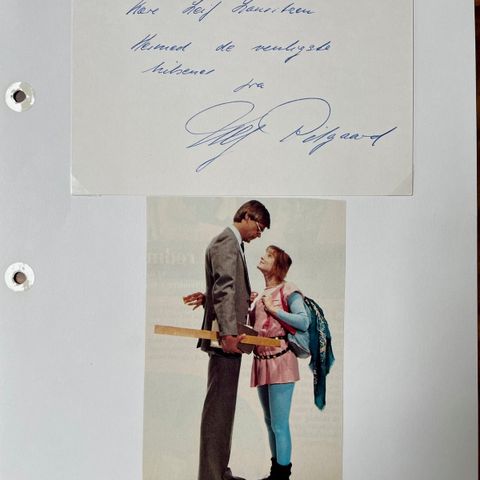 Kære Leif Lauritzen
Hermed de venligste
hilsener
fra
Ulf Pilgaard